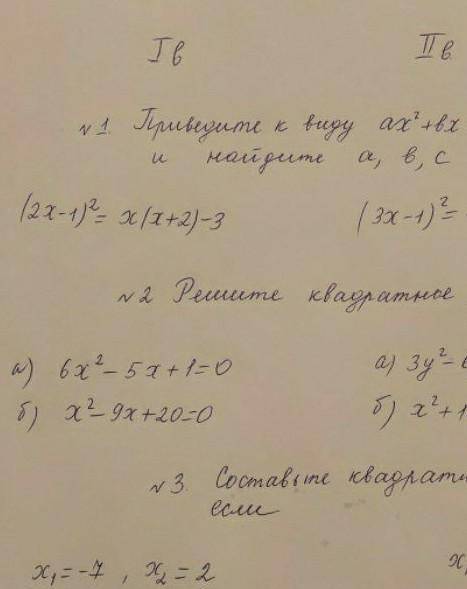 I в II в
№1. Приведите к виду ax²+вx
и найдите a, в, c
(2x-1)² = x(x+2)-3 (3x-1)² =
№2 Решите квадратное
а) 6x²-5x+1=0 а) 3y²-
б) x²-9x+20=0 б) x²+1
№3. Составьте
если
x₁=-7, x₂=2